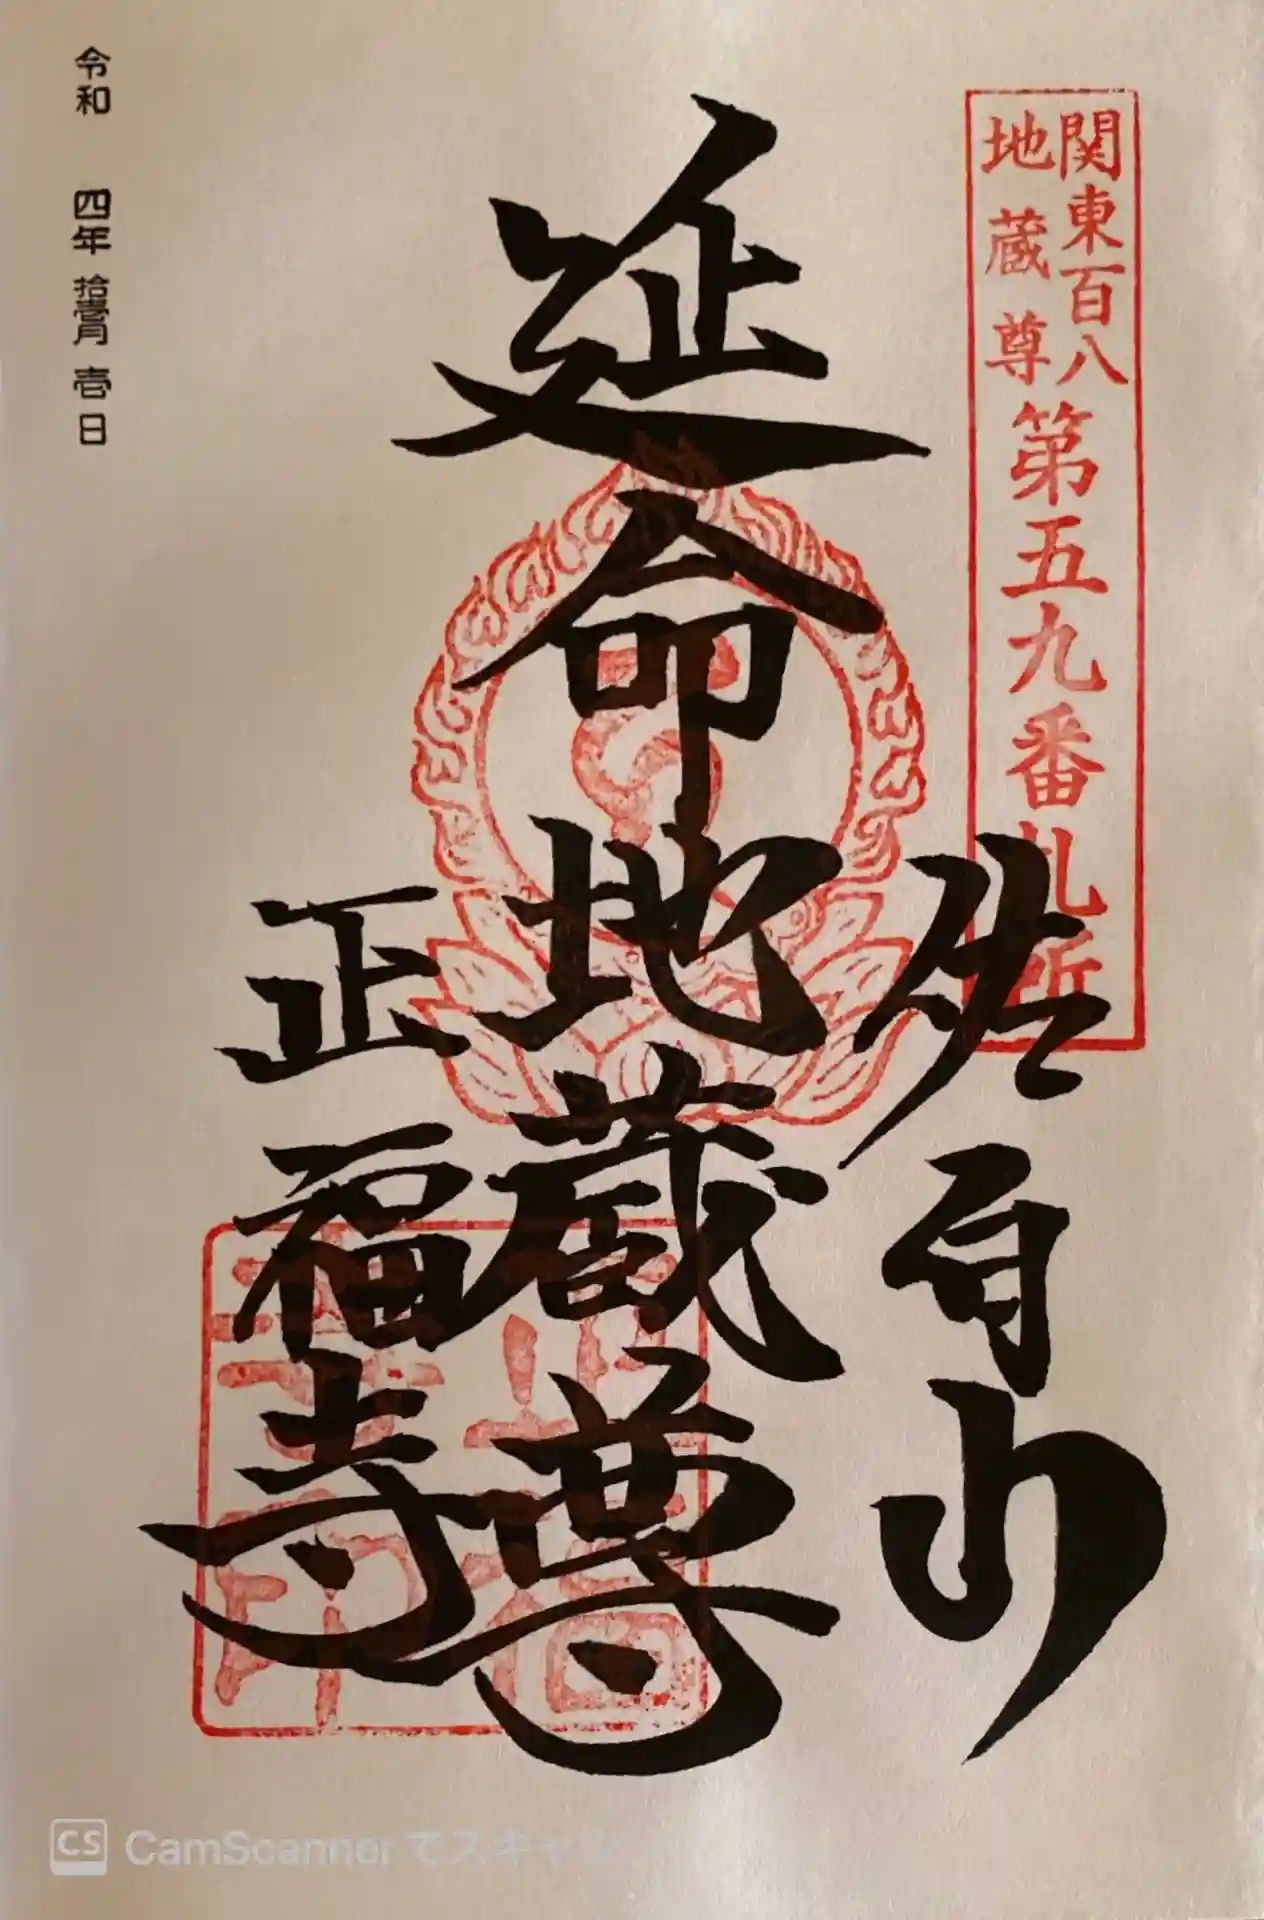 関東百八
地蔵尊
第五九番札所
佐白山
延命地蔵尊
正福寺
令和 四年 拾壱月 壱日
CS CamScanner でスキャン